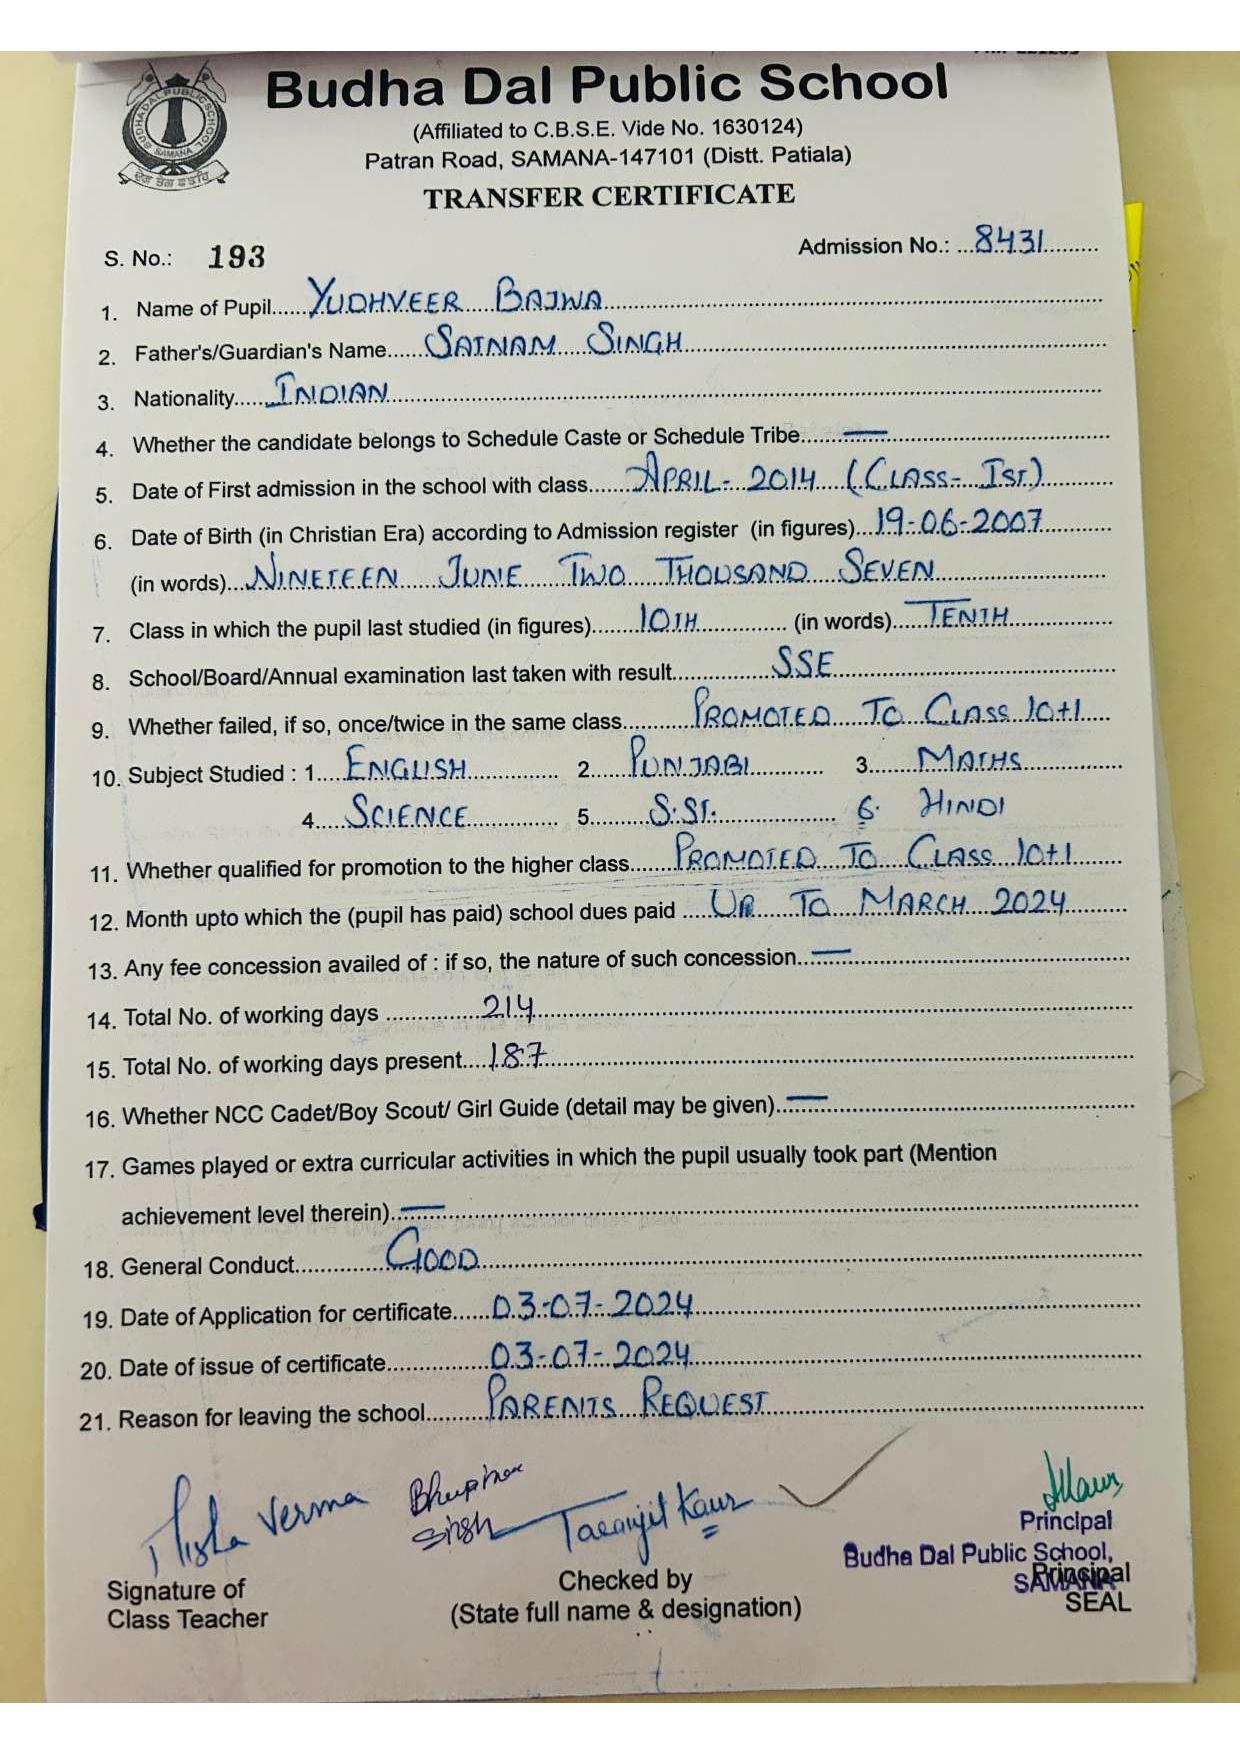 Budha Dal Public School
(Affiliated to C.B.S.E. Vide No. 1630124)
Patran Road, SAMANA-147101 (Distt. Patiala)
TRANSFER CERTIFICATE
BUDHA DAL PUBLIC SCHOOL
SAMANA
S. No.: 193
Admission No.: ...8431
1. Name of Pupil YUDHVEER BAJWA
2. Father's/Guardian's Name SATNAM SINGH
3. Nationality INDIAN
4. Whether the candidate belongs to Schedule Caste or Schedule Tribe —
5. Date of First admission in the school with class APRIL- 2014 (CLASS- IST.)
6. Date of Birth (in Christian Era) according to Admission register (in figures) 19-06-2007
(in words) NINETEEN JUNE TWO THOUSAND SEVEN
7. Class in which the pupil last studied (in figures) 10TH (in words) TENTH
8. School/Board/Annual examination last taken with result SSE
9. Whether failed, if so, once/twice in the same class PROMOTED TO CLASS 10+1
10. Subject Studied : 1. ENGLISH 2. PUNJABI 3. MATHS
4. SCIENCE 5. S.ST. 6. HINDI
11. Whether qualified for promotion to the higher class PROMOTED TO CLASS 10+1
12. Month upto which the (pupil has paid) school dues paid UP TO MARCH 2024
13. Any fee concession availed of : if so, the nature of such concession —
14. Total No. of working days 214
15. Total No. of working days present 187
16. Whether NCC Cadet/Boy Scout/ Girl Guide (detail may be given) —
17. Games played or extra curricular activities in which the pupil usually took part (Mention
achievement level therein) —
18. General Conduct GOOD
19. Date of Application for certificate 03-07-2024
20. Date of issue of certificate 03-07-2024
21. Reason for leaving the school PARENTS REQUEST
Verma
Singh
Taranjit Kaur
Principal
Budha Dal Public School,
SAMANA
Signature of
Class Teacher
Checked by
(State full name & designation)
Principal
SEAL